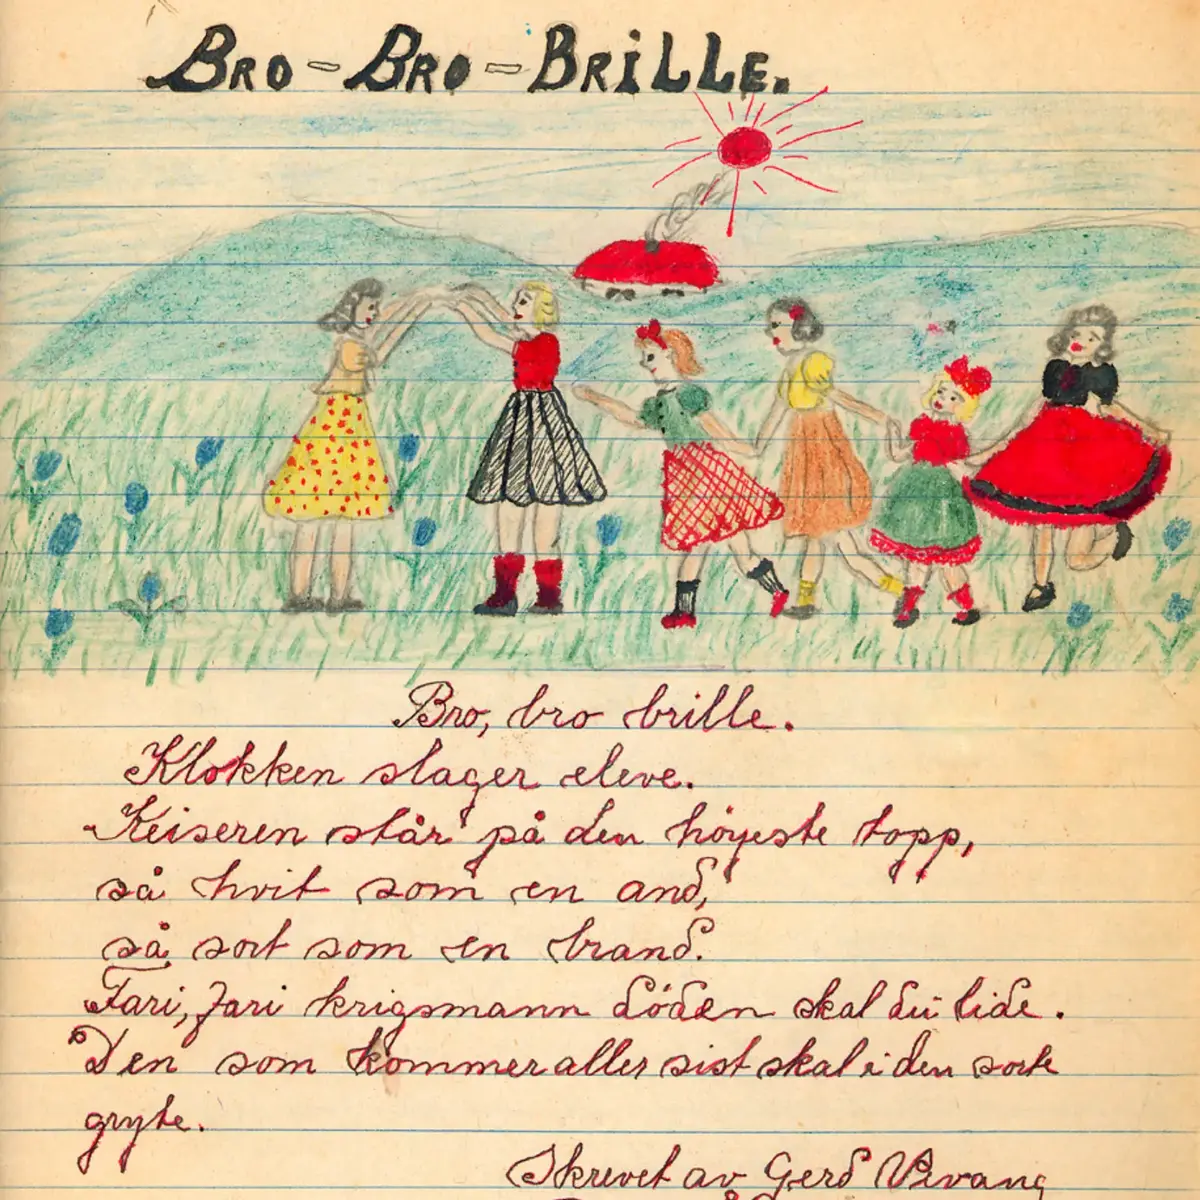 BRO-BRO-BRILLE.
Bro, bro brille.
Klokken slager eleve.
Keiseren står på den höyeste topp,
så hvit som en and,
så sort som en brand.
Fari, fari krigsmann döden skal du lide.
Den som kommer aller sist skal i den sorte
gryte.
Skrevet av Gerd